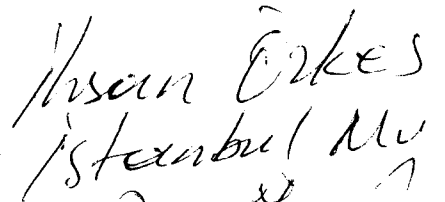 İhsan Özkes
İstanbul Mv